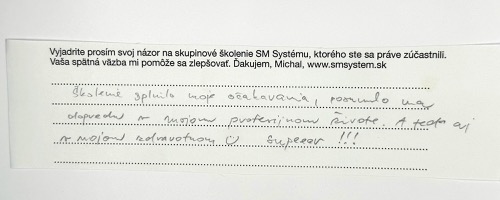 Vyjadrite prosím svoj názor na skupinové školenie SM Systému, ktorého ste sa práve zúčastnili.
Vaša spätná väzba mi pomôže sa zlepšovať. Ďakujem, Michal, www.smsystem.sk
školenie splnilo moje očakávania, posunulo ma
dopredu v mojom profesijnom živote. A teda aj
v mojom zdravotnom ☺ Supeeer !!!